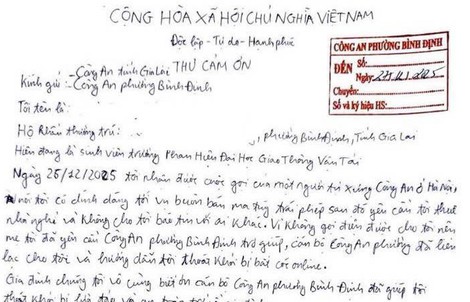 CỘNG HÒA XÃ HỘI CHỦ NGHĨA VIỆT NAM
Độc lập - Tự do - Hạnh phúc
THƯ CẢM ƠN
Kính gửi: - Công An tỉnh Gia Lai
- Công An phường Bình Định
CÔNG AN PHƯỜNG BÌNH ĐỊNH
ĐẾN Số:
Ngày
Chuyển:
Số và ký hiệu HS:
Tôi tên là
Hộ khẩu thường trú: , phường Bình Định, Tỉnh Gia Lai
Hiện đang là sinh viên trường Phân Hiệu Đại Học Giao Thông Vận Tải
Ngày 25/12/2025 tôi nhận được cuộc gọi của một người tự xưng Công An ở Hà Nội,
nói tôi có dính dáng tới vụ buôn bán ma túy trái phép sau đó yêu cầu tôi thuê
nhà nghỉ và không cho tôi báo tin với ai khác. Vì không gọi điện được cho tôi nên
mẹ tôi đã yêu cầu Công An phường Bình Định trợ giúp, cán bộ Công An phường đã liên
lạc cho tôi và hướng dẫn tôi thoát khỏi bị bắt cóc online.
Gia đình chúng tôi vô cùng biết ơn cán bộ Công An phường Bình Định đã giúp tôi
thoát khỏi bị lừa đảo và an toàn